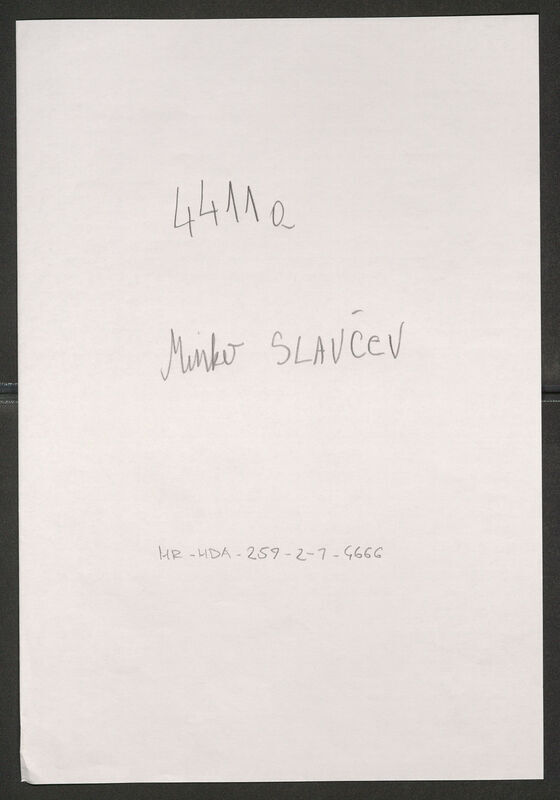 4411a
Minko SLAVČEV
HR-HDA-259-2-1-4666